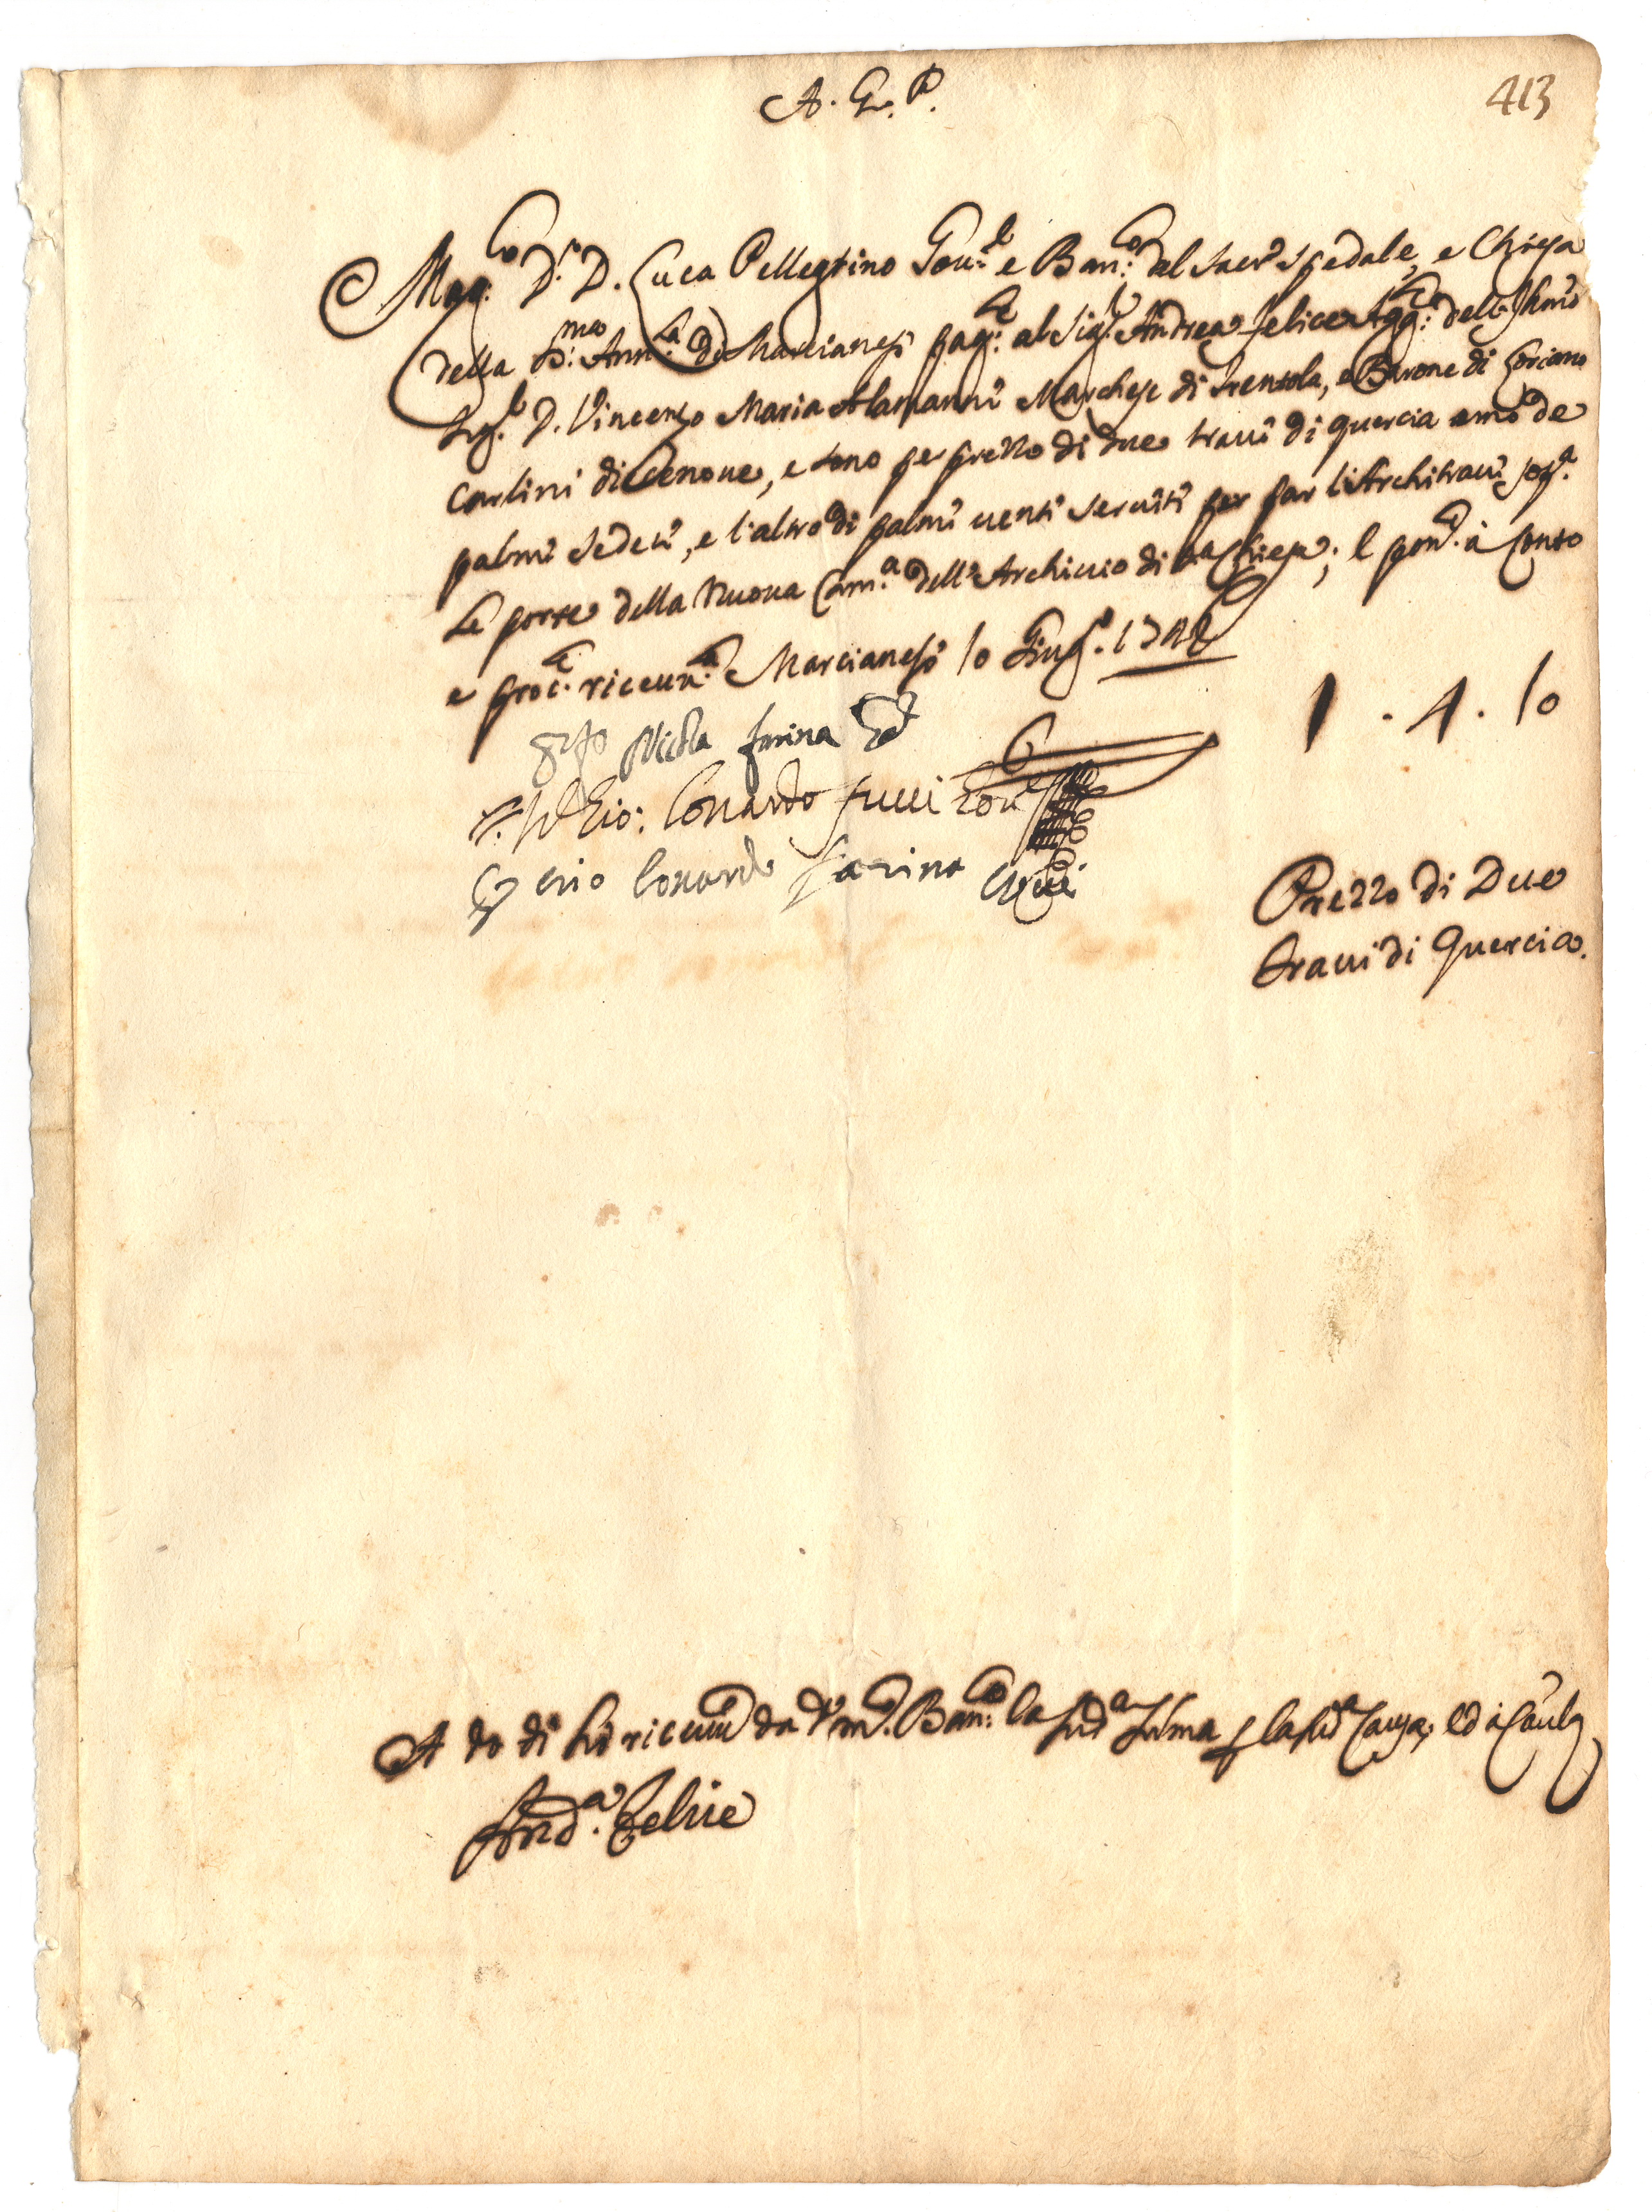 A. G. P.
413
Mag.co D.r D. Luca Pellegrino Gou.re e Ban.co del Sacro Spedale, e Chiesa
della SS.ma Ann.ta di Marcianesi pag.te al Sig.r Andrea Felice Agg.te dell'Ill.mo
Sig.r D. Vincenzo Maria Alamanni Marchese di Trentola, e Barone di Loriano
carlini dicenove, e sono per prezzo di due traui di quercia uno de
palmi sedeci, e l'altro di palmi uenti seruiti per far l'Architraui sop.a
le porte della nuova Cam.a dell'Archiuio di d.a Chiesa; e pon.te à conto
e proc.te riceuu.a Marcianesi 10 Giug.o 1742
1 . 4 . 10
Nicola farina
Gio: Lonardo fucci Gou.re
Lonardo farina
Prezzo di Due
traui di Quercia.
A do di hò riceuuto da d.o m.co Ban.co la sud.a suma per la sud.a causa, ed in cautela
And.a Felice